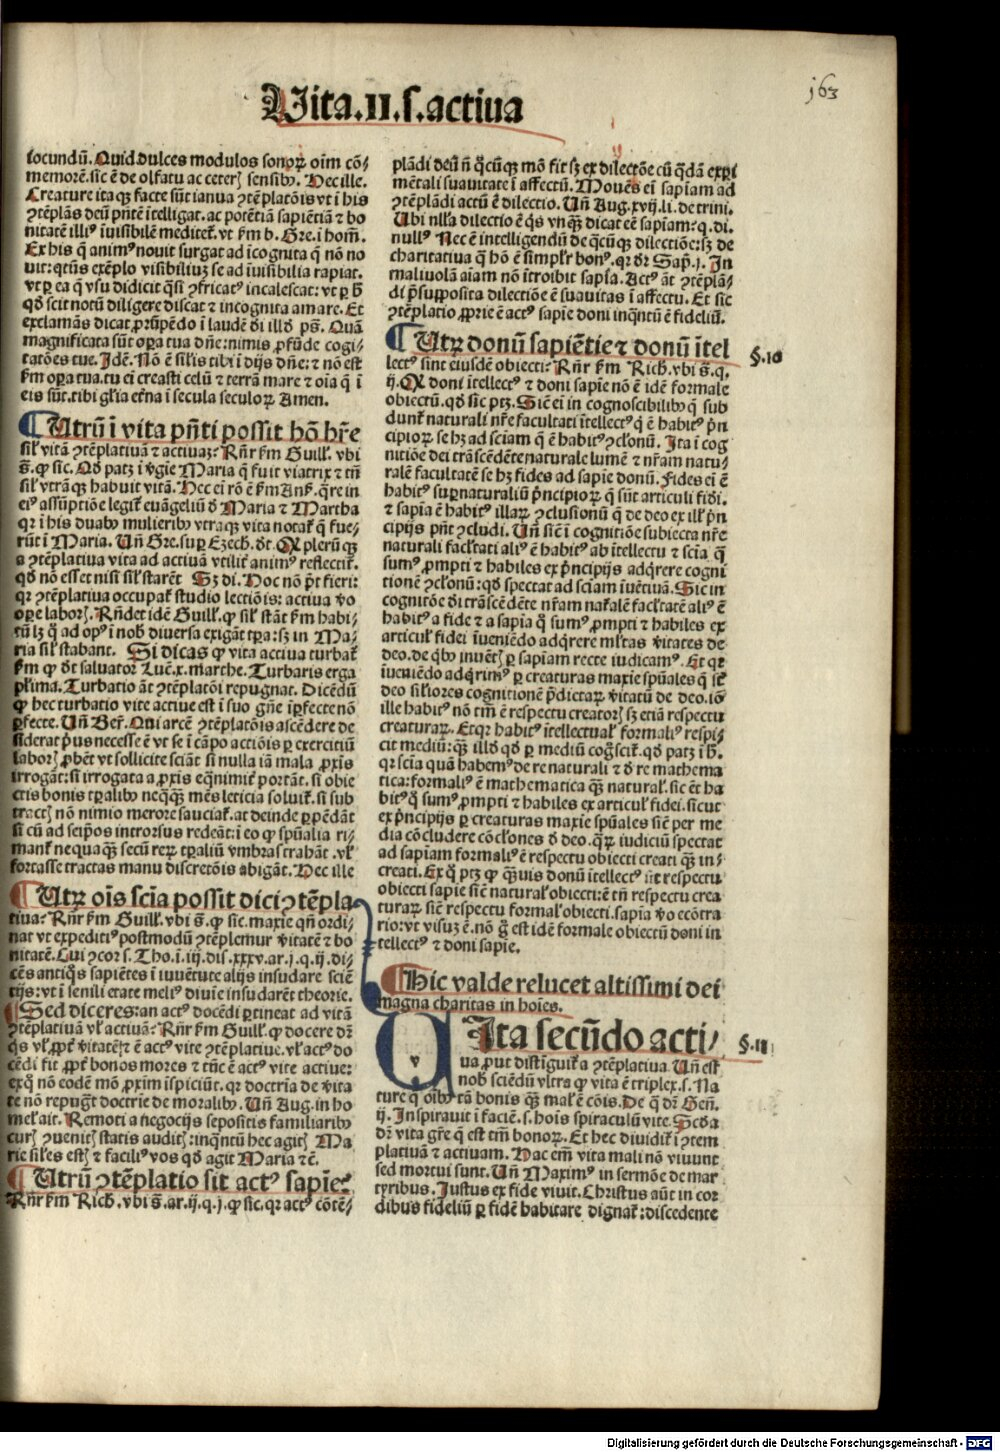 Vita.II.s.actiua
163
iocundũ. Quid dulces modulos sonoꝝ oim cõ⸗
memorē. sic ē de olfatu ac ceterꝭ sensibꝰ. Hec ille.
Creature itaqꝫ facte sũt ianua ꝯtẽplatõnis vt i his
ꝯtẽplãs deũ pñtẽ ĩtelligat. ac potẽtiã sapiẽtiã ⁊ bo
nitatẽ illiꝰ ĩuisibilẽ meditet̃. vt fm b. Gre. i hom̃.
Ex his q̃ animꝰ nouit surgat ad ĩcognita q̃ nõ no
uit: qtñs exẽplo visibiliuꝫ se ad ĩuisibilia rapiat.
vt ꝑ ea q̃ vsu didicit q̃si ꝯfricatꝰ incalescat: vt ꝑ h̃
qđ scit notũ diligere discat ⁊ incognita amare. Et
exclamãs dicat ꝓrũpẽdo ĩ laudẽ đi illđ pš. Quã
magnificata sũt oꝑa tua dñe: nimis ꝓfũde cogi⸗
tatões tue. Jdẽ. Nõ ẽ sil̃is tibi ĩ dijs dñe: ⁊ nõ est
fm oꝑa tua. tu ei creasti celũ ⁊ terrã mare ⁊ oĩa q̃ ĩ
eis sũt. tibi gl̃ia et̃na ĩ secula seculoꝝ Amen.
¶ Utrũ ĩ vita pñti possit hõ hr̃e
sil̃ vitã ꝯtẽplatiuã ⁊ actiuaꝫ? Rñr fm Guill̃. vbi
š. ꝙ sic. Qđ patꝫ ĩ vgie Maria q̃ fuit viatrix ⁊ tñ
sil̃ vtrãqꝫ habuit vitã. Hec ei rõ ẽ fm Anš. q̃re in
eiꝰ assũptiõe legit̃ euãgeliũ đ Maria ⁊ Martha
qꝛ ĩ his duabꝰ mulieribꝰ vtraqꝫ vita notat̃ q̃ fue⸗
rũt ĩ Maria. Uñ Gre. suꝑ Ezech. đt. Qꝫ plerũqꝫ
a ꝯtẽplatiua vita ad actiuã vtilit̃ animꝰ reflectit̃.
qđ nõ esset nisi sil̃ starẽt Sꝫ di. Hoc nõ p̃t fieri:
qꝛ ꝯtẽplatiua occupat̃ studio lectiõis: actiua v̾o
oꝑe laborꝭ. Rñdet idẽ Guill̃. ꝙ sil̃ stãt fm habi⸗
tũ lꝫ q̃ ad opꝰ ĩ nob̃ diuersa exigãt tꝑa: sꝫ in Ma⸗
ria sil̃ stabant. Si dicas ꝙ vita actiua turbat̃
fm ꝙ đt saluator Luč. x. marthe. Turbaris erga
pl̃ima. Turbatio ãt ꝯtẽplatõi repugnat. Dicẽdũ
ꝙ hec turbatio vite actiue est ĩ suo gñe ĩꝑfecte nõ
ꝑfecte. Uñ Ber̃. Qui arcẽ ꝯtẽplatõis ascẽdere de
siderat p̃us necesse ẽ vt se ĩ cãpo actiõis ꝑ exercitiũ
laborꝭ ꝓbẽt vt sollicite sciãt si nulla iã mala ꝓxis
irrogãt: si irrogata a ꝓxis eq̃nimit̃ portãt. si obie
ctis bonis tꝑalibꝰ neq̃q̃ꝫ mẽs leticia soluit̃. si sub
tractꝭ nõ nimio merore sauciat̃. at deinde ꝑpẽdãt
si cũ ad seip̃os introrsus redeãt: ĩ eo ꝙ spũalia ri⸗
mant̃ nequaquaꝫ secũ reꝝ tꝑaliũ vmbras trahãt. vl̃
fortasse tractas manu discretõis abigãt. Hec ille
¶ Utꝝ oĩs scĩa possit dici ꝯtẽpla
tiua? Rñr fm Guill̃. vbi š. ꝙ sic. maxie qñ ordi⸗
nat vt expeditiꝰ postmodũ ꝯtẽplemur v̾itatẽ ⁊ bo
nitatẽ. Cui ꝯcor s. Tho. ĩ. iij. dis. xxxv. ar. j. q. ij. di⸗
cẽs antiq̃s sapiẽtes ĩ iuuẽtute alijs insudare sciẽ
tijs: vt ĩ senili etate meliꝰ diuĩe insudarẽt theorie.
¶ Sed diceres: an actꝰ docẽdi ꝑtineat ad vitã
ꝯtẽplatiuã vl̃ actiuã? Rñr fm Guill̃. ꝙ docere dr̃
q̃s vl̃ ꝓpt̃ v̾itatẽ: ⁊ ẽ actꝰ vite ꝯtẽplatiue. vl̃ actꝰ do
cẽdi fit ꝓpt̃ bonos mores ⁊ tũc ẽ actꝰ vite actiue:
exq̃ nõ eodẽ mõ ꝓxim ĩspiciũt. qꝛ doctria de v̾ita
te nõ repugt̃ doctrie de moralibꝰ. Uñ Aug. in ho
mel̃ ait. Remoti a negocijs sepositis familiaribꝰ
curꝭ ꝯuenitꝭ statis auditꝭ: inq̃ntũ hec agitꝭ Ma
rie sil̃es estꝭ ⁊ faciliꝰ vos qđ agit Maria ⁊č.
¶ Utrũ ꝯtẽplatio sit actꝰ sapĩe?
Rñr fm Rich. vbi š. ar. ij. q. j. ꝙ sic. qꝛ actꝰ cõtẽ⸗
plãdi deũ ñ q̃cũqꝫ mõ fit sꝫ ex dilectõe cũ q̃dã expi
mẽtali suauitate ĩ affectũ. Mouẽs ei sapiam ad
ꝯtẽplãdi actũ ẽ dilectio. Uñ Aug. xvij. li. de trini.
Ubi nll̃a dilectio ẽ q̃s vnqꝫ dicat eẽ sapiam? q. di.
nullꝰ Nec ẽ intelligendũ de q̃cũqꝫ dilectiõe: sꝫ de
charitatiua q̃ hõ ẽ simpl̃r bonꝰ. qꝛ đr Sap̃. j. Jn
maliuolã aiam nõ ĩtroibit sapĩa. Actꝰ ãt ꝯtẽplã⸗
di p̃supposita dilectiõe ẽ suauitas ĩ affectu. Et sic
ꝯtẽplatio ꝓprie ẽ actꝰ sapie doni inq̃ntũ ẽ fideliũ.
¶ Utꝝ donũ sapiẽtie ⁊ donũ ĩtel
§. 10
lectꝰ sint eiusdẽ obiecti? Rñr fm Rich. vbi š. q.
ij. Qꝫ doni ĩtellectꝰ ⁊ doni sapie nõ ẽ idẽ formale
obiectũ. qđ sic ptꝫ. Sic̃ ei in cognoscibilibꝰ q̃ sub
dunt̃ naturali nr̃e facultati ĩtellectꝰ q̃ ẽ habitꝰ p̃n
cipioꝝ se hꝫ ad sciam q̃ ẽ habitꝰ ꝯcl̃onũ. Jta ĩ cog
nitiõe dei trãscẽdẽte naturale lumẽ ⁊ nr̃am natu⸗
ralẽ facultatẽ se hꝫ fides ad sapie donũ. Fides ei ẽ
habitꝰ suꝑnaturaliũ p̃ncipioꝝ q̃ sũt articuli fiđi.
⁊ sapia ẽ habitꝰ illaꝝ ꝯclusionũ q̃ de deo ex ill̃ p̃n
cipijs pñt ꝯcludi. Uñ sic̃ ĩ cognitiõe subiecta nr̃e
naturali facl̃tati aliꝰ ẽ habitꝰ ab ĩtellectu ⁊ scia q̃
sumꝰ ꝓmpti ⁊ habiles ex p̃ncipijs adq̃rere cogni
tionẽ ꝯcl̃onũ: qđ spectat ad sciam ĩuẽtiuã. Sic in
cognitõe đi trãscẽdẽte nr̃am nat̃alẽ facl̃tatẽ aliꝰ ẽ
habitꝰ a fide ⁊ a sapia q̃ sumꝰ ꝓmpti ⁊ habiles ex
articul̃ fidei ĩueniẽdo adq̃rere ml̃tas v̾itates de
deo. de q̃bꝰ ĩnuẽtꝭ ꝑ sapiam recte iudicamꝰ. Et qꝛ
ĩueniẽdo adq̃rimꝰ ꝑ creaturas maxie spũales q̃ st̃
deo sil̃iores cognitionẽ p̃dictaꝝ v̾itatũ de deo. iõ
ille habitꝰ nõ tm̃ ẽ respectu creatorꝭ sꝫ etiã respectu
creaturaꝝ. Et qꝛ habitꝰ ĩtellectual̃ formaliꝰ respi⸗
cit mediũ: q̃ꝫ illđ qđ ꝑ mediũ cog̃scit̃. qđ patꝫ ĩ h̃.
qꝛ scia quã habemꝰ de re naturali ⁊ đ re mathema
tica: formaliꝰ ẽ mathematica q̃ꝫ natural̃. sic ẽt ha
bitꝰ q̃ sumꝰ ꝓmpti ⁊ habiles ex articul̃ fidei. sicut
ex p̃ncipijs ꝑ creaturas maxie spũales sic̃ per me
dia cõcludere cõcl̃ones đ deo. q̃ꝝ iudiciũ spectat
ad sapiam formaliꝰ ẽ respectu obiecti creati q̃ꝫ in⸗
creati. Ex q̃ ptꝫ ꝙ q̃ꝫuis donũ ĩtellectꝰ sit respectu
obiecti sapie sic̃ natural̃ obiecti: ẽ tñ respectu crea
turaꝝ sic̃ respectu formal̃ obiecti. sapia v̾o ecõtra
rio: vt visuꝫ ẽ. nõ g̃ est idẽ formale obiectũ doni in
tellectꝰ ⁊ doni sapie.
¶ Hic valde relucet altissimi dei
magna charitas in hoies.
Vita secũdo acti⸗
§. 11
ua ꝓut distĩguit̃ a ꝯtẽplatiua. Uñ est̃
nob̃ sciẽdũ vltra ꝙ vita ẽ triplex. s. Na
ture q̃ oĩbꝰ tã bonis q̃ꝫ mal̃ ẽ cõis. De q̃ đr Geñ.
ij. Jnspirauit ĩ faciẽ. s. hois spiraculũ vite. Scđa
đr vita gr̃e q̃ est tm̃ bonoꝝ. Et hec diuidit̃ ĩ ꝯtem
platiuã ⁊ actiuam. Hac em̃ vita mali nõ viuunt
sed mortui sunt. Uñ Maximꝰ in sermõe de mar
tyribus. Justus ex fide viuit. Christus aũt in cor
dibus fideliũ ꝑ fidẽ habitare dignat̃: discedente
Digitalisierung gefördert durch die Deutsche Forschungsgemeinschaft - DFG